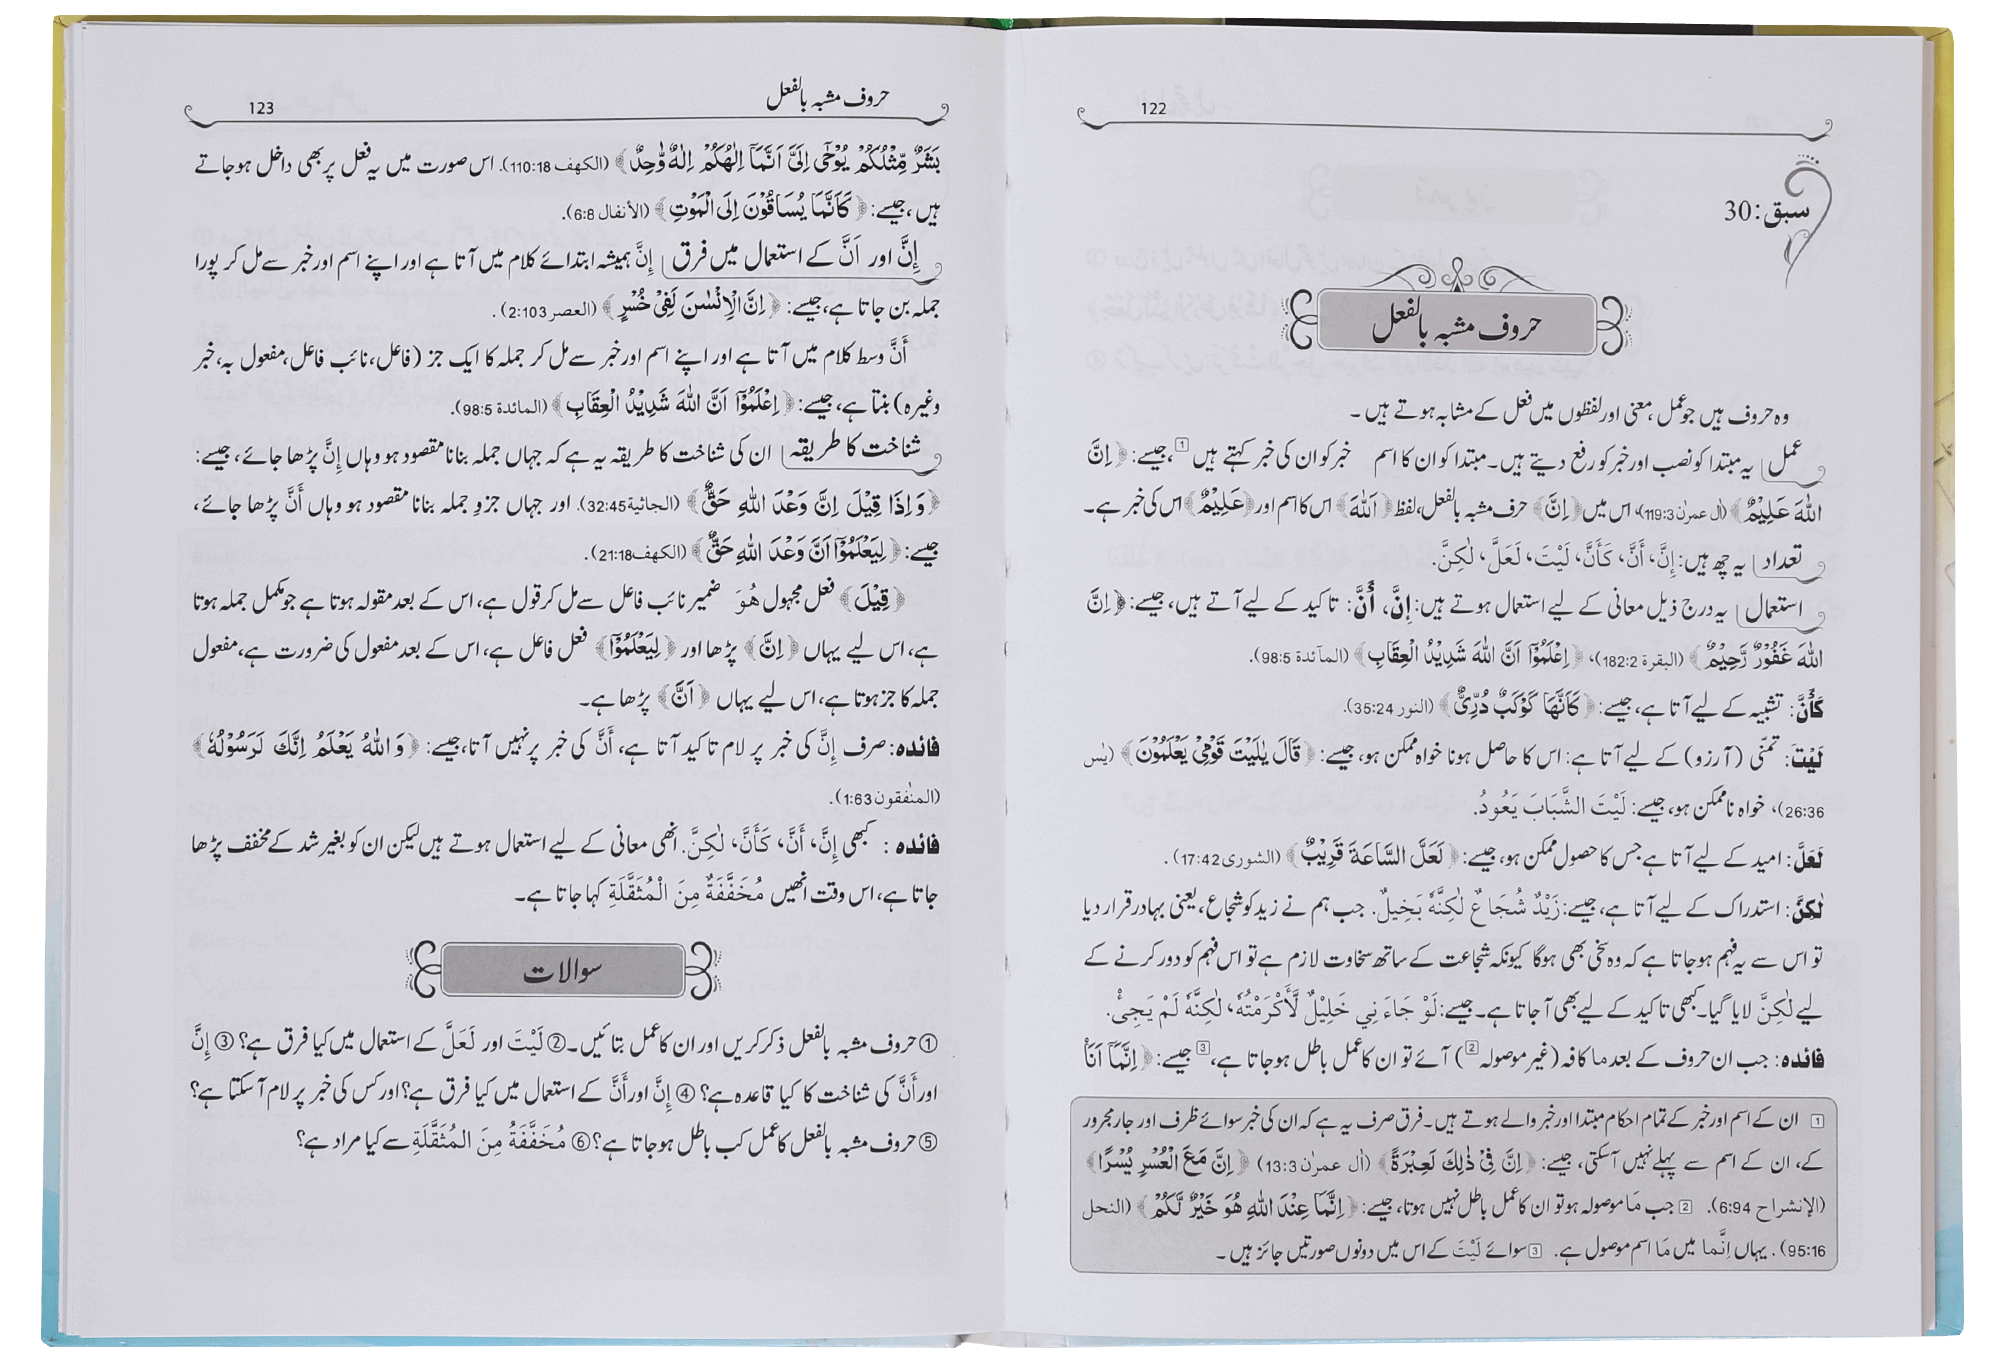 122
سبق:30
حروف مشبہ بالفعل
وہ حروف ہیں جو عمل، معنی اور لفظوں میں فعل کے مشابہ ہوتے ہیں۔
عمل یہ مبتدا کو نصب اور خبر کو رفع دیتے ہیں۔ مبتدا کو ان کا اسم خبر کو ان کی خبر کہتے ہیں 1، جیسے: ﴿اِنَّ
اللّٰهَ عَلِيْمٌ﴾ (اٰل عمرٰن 119:3)، اس میں ﴿اِنَّ﴾ حرف مشبہ بالفعل، لفظ ﴿اَللّٰهَ﴾ اس کا اسم اور ﴿عَلِيْمٌ﴾ اس کی خبر ہے۔
تعداد یہ چھ ہیں: إِنَّ، أَنَّ، كَأَنَّ، لَيْتَ، لَعَلَّ، لٰكِنَّ.
استعمال یہ درج ذیل معانی کے لیے استعمال ہوتے ہیں: إِنَّ، أَنَّ: تاکید کے لیے آتے ہیں، جیسے: ﴿اِنَّ
اللّٰهَ غَفُوْرٌ رَّحِيْمٌ﴾ (البقرة 182:2)، ﴿اِعْلَمُوْٓا اَنَّ اللّٰهَ شَدِيْدُ الْعِقَابِ﴾ (المآئدة 98:5).
كَأَنَّ: تشبیہ کے لیے آتا ہے، جیسے: ﴿كَاَنَّهَا كَوْكَبٌ دُرِّيٌّ﴾ (النور 35:24).
لَيْتَ: تمنّی (آرزو) کے لیے آتا ہے: اس کا حاصل ہونا خواہ ممکن ہو، جیسے: ﴿قَالَ يٰلَيْتَ قَوْمِيْ يَعْلَمُوْنَ﴾ (يٰس
26:36)، خواہ ناممکن ہو، جیسے: لَيْتَ الشَّبَابَ يَعُودُ.
لَعَلَّ: امید کے لیے آتا ہے جس کا حصول ممکن ہو، جیسے: ﴿لَعَلَّ السَّاعَةَ قَرِيْبٌ﴾ (الشورى 17:42).
لٰكِنَّ: استدراک کے لیے آتا ہے، جیسے: زَيْدٌ شُجَاعٌ لٰكِنَّهٗ بَخِيلٌ. جب ہم نے زید کو شجاع، یعنی بہادر قرار دیا
تو اس سے یہ فہم ہو جاتا ہے کہ وہ سخی بھی ہوگا کیونکہ شجاعت کے ساتھ سخاوت لازم ہے تو اس فہم کو دور کرنے کے
لیے لٰكِنَّ لایا گیا۔ کبھی تاکید کے لیے بھی آ جاتا ہے۔ جیسے: لَوْ جَاءَنِي خَلِيْلٌ لَّأَكْرَمْتُهٗ، لٰكِنَّهٗ لَمْ يَجِئْ.
فائدہ: جب ان حروف کے بعد ما کافہ (غیر موصولہ 2) آئے تو ان کا عمل باطل ہو جاتا ہے، 3 جیسے: ﴿اِنَّمَآ اَنَا۠
1 ان کے اسم اور خبر کے تمام احکام مبتدا اور خبر والے ہوتے ہیں۔ فرق صرف یہ ہے کہ ان کی خبر سوائے ظرف اور جار مجرور
کے، ان کے اسم سے پہلے نہیں آ سکتی، جیسے: ﴿اِنَّ فِيْ ذٰلِكَ لَعِبْرَةً﴾ (اٰل عمرٰن 13:3) ﴿اِنَّ مَعَ الْعُسْرِ يُسْرًا﴾
(الإنشراح 6:94). 2 جب مَا موصولہ ہو تو ان کا عمل باطل نہیں ہوتا، جیسے: ﴿اِنَّمَا عِنْدَ اللّٰهِ هُوَ خَيْرٌ لَّكُمْ﴾ (النحل
95:16). یہاں اِنَّما میں مَا اسم موصول ہے. 3 سوائے لَيْتَ کے اس میں دونوں صورتیں جائز ہیں۔
حروف مشبہ بالفعل 123
بَشَرٌ مِّثْلُكُمْ يُوْحٰٓى اِلَيَّ اَنَّمَآ اِلٰهُكُمْ اِلٰهٌ وَّاحِدٌ﴾ (الكهف 110:18). اس صورت میں یہ فعل پر بھی داخل ہو جاتے
ہیں، جیسے: ﴿كَاَنَّمَا يُسَاقُوْنَ اِلَى الْمَوْتِ﴾ (الأنفال 6:8).
إِنَّ اور اَنَّ کے استعمال میں فرق إِنَّ ہمیشہ ابتدائے کلام میں آتا ہے اور اپنے اسم اور خبر سے مل کر پورا
جملہ بن جاتا ہے، جیسے: ﴿اِنَّ الْاِنْسٰنَ لَفِيْ خُسْرٍ﴾ (العصر 2:103).
أَنَّ وسط کلام میں آتا ہے اور اپنے اسم اور خبر سے مل کر جملہ کا ایک جز (فاعل، نائب فاعل، مفعول بہ، خبر
وغیرہ) بنتا ہے، جیسے: ﴿اِعْلَمُوْٓا اَنَّ اللّٰهَ شَدِيْدُ الْعِقَابِ﴾ (المائدة 98:5).
شناخت کا طریقہ ان کی شناخت کا طریقہ یہ ہے کہ جہاں جملہ بنانا مقصود ہو وہاں إِنَّ پڑھا جائے، جیسے:
﴿وَاِذَا قِيْلَ اِنَّ وَعْدَ اللّٰهِ حَقٌّ﴾ (الجاثية 32:45). اور جہاں جزوِ جملہ بنانا مقصود ہو وہاں أَنَّ پڑھا جائے،
جیسے: ﴿لِيَعْلَمُوْٓا اَنَّ وَعْدَ اللّٰهِ حَقٌّ﴾ (الكهف 21:18).
﴿قِيْلَ﴾ فعل مجہول هُوَ ضمیر نائب فاعل سے مل کر قول ہے، اس کے بعد مقولہ ہوتا ہے جو مکمل جملہ ہوتا
ہے، اس لیے یہاں ﴿اِنَّ﴾ پڑھا اور ﴿لِيَعْلَمُوْٓا﴾ فعل فاعل ہے، اس کے بعد مفعول کی ضرورت ہے، مفعول
جملہ کا جز ہوتا ہے، اس لیے یہاں ﴿اَنَّ﴾ پڑھا ہے۔
فائدہ: صرف إِنَّ کی خبر پر لام تاکید آتا ہے، أَنَّ کی خبر پر نہیں آتا، جیسے: ﴿وَاللّٰهُ يَعْلَمُ اِنَّكَ لَرَسُوْلُهٗ﴾
(المنٰفقون 1:63).
فائدہ: کبھی إِنَّ، أَنَّ، كَأَنَّ، لٰكِنَّ. انھی معانی کے لیے استعمال ہوتے ہیں لیکن ان کو بغیر شد کے مخفف پڑھا
جاتا ہے، اس وقت انھیں مُخَفَّفَةٌ مِنَ الْمُثَقَّلَةِ کہا جاتا ہے۔
سوالات
① حروف مشبہ بالفعل ذکر کریں اور ان کا عمل بتائیں۔ ② لَيْتَ اور لَعَلَّ کے استعمال میں کیا فرق ہے؟ ③ إِنَّ
اور أَنَّ کی شناخت کا کیا قاعدہ ہے؟ ④ إِنَّ اور أَنَّ کے استعمال میں کیا فرق ہے؟ اور کس کی خبر پر لام آ سکتا ہے؟
⑤ حروف مشبہ بالفعل کا عمل کب باطل ہو جاتا ہے؟ ⑥ مُخَفَّفَةٌ مِنَ المُثَقَّلَةِ سے کیا مراد ہے؟